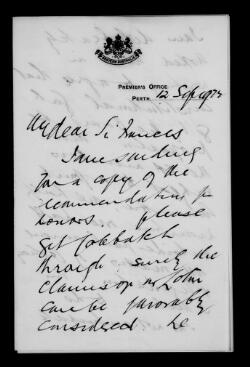 PREMIER'S OFFICE
PERTH.
12 Sep 1922
My dear Sir Francis
I am sending
for a copy of the
recommendations for
honors please
get Colebatch
through. Surely the
claims of
can be favorably
considered he